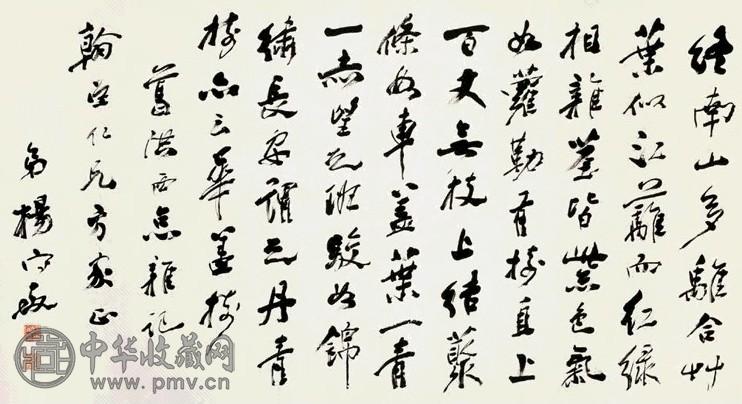 終南山多離合艸
葉似江蘺而紅綠
相雜莖皆紫色氣
如蘿勒有樹直上
百丈無枝上結藂
條如車蓋葉一青
一赤望之班駮如錦
繡長安謂之丹青
樹亦云華蓋樹
葛洪西京雜記
翰 仁兄方家正
弟楊守敬
中华收藏网
www.pmv.cn